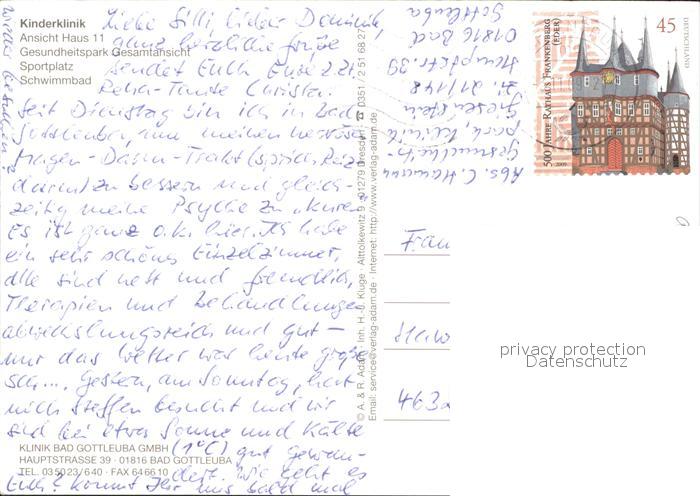 Kinderklinik
Ansicht Haus 11
Gesundheitspark Gesamtansicht
Sportplatz
Schwimmbad
Liebe Silli, lieber Dominik,
ganz herzliche Grüße
sendet Euch Eure z.Zt.
Reha-Tante Christa.
Seit Dienstag bin ich in Bad
Gottleuba, um meinen nervösen
Magen-Darm-Trakt (sprich Reiz-
darm) zu bessern und gleich-
zeitig meine Psyche zu "kuren".
Es ist ganz o.k. hier. Ich habe
ein sehr schönes Einzelzimmer,
alle sind nett und freundlich,
Therapien und Behandlungen
abwechslungsreich und gut –
nur das Wetter war heute große
Sch... Gestern, am Sonntag, hat
mich Steffen besucht und wir
sind bei etwas Sonne und Kälte
(1°C) gut gewan-
dert. Wie geht es
Euch? Kommt Ihr uns bald mal
KLINIK BAD GOTTLEUBA GMBH
HAUPTSTRASSE 39 · 01816 BAD GOTTLEUBA
TEL. 035023/640 · FAX 646610
© A. & R. Adam, Inh. H.-J. Kluge · Alttolkewitz 9 · 01279 Dresden · ☎ 0351 / 2 51 68 27
Email: service@verlag-adam.de · Internet: http://www.verlag-adam.de
Abs. C.
Gesundheits-
park Klinik
21/148
Hauptstr. 39
01816 Bad
Gottleuba
500 JAHRE RATHAUS FRANKENBERG
(EDER)
45
DEUTSCHLAND
2009
Frau
463
privacy protection
Datenschutz